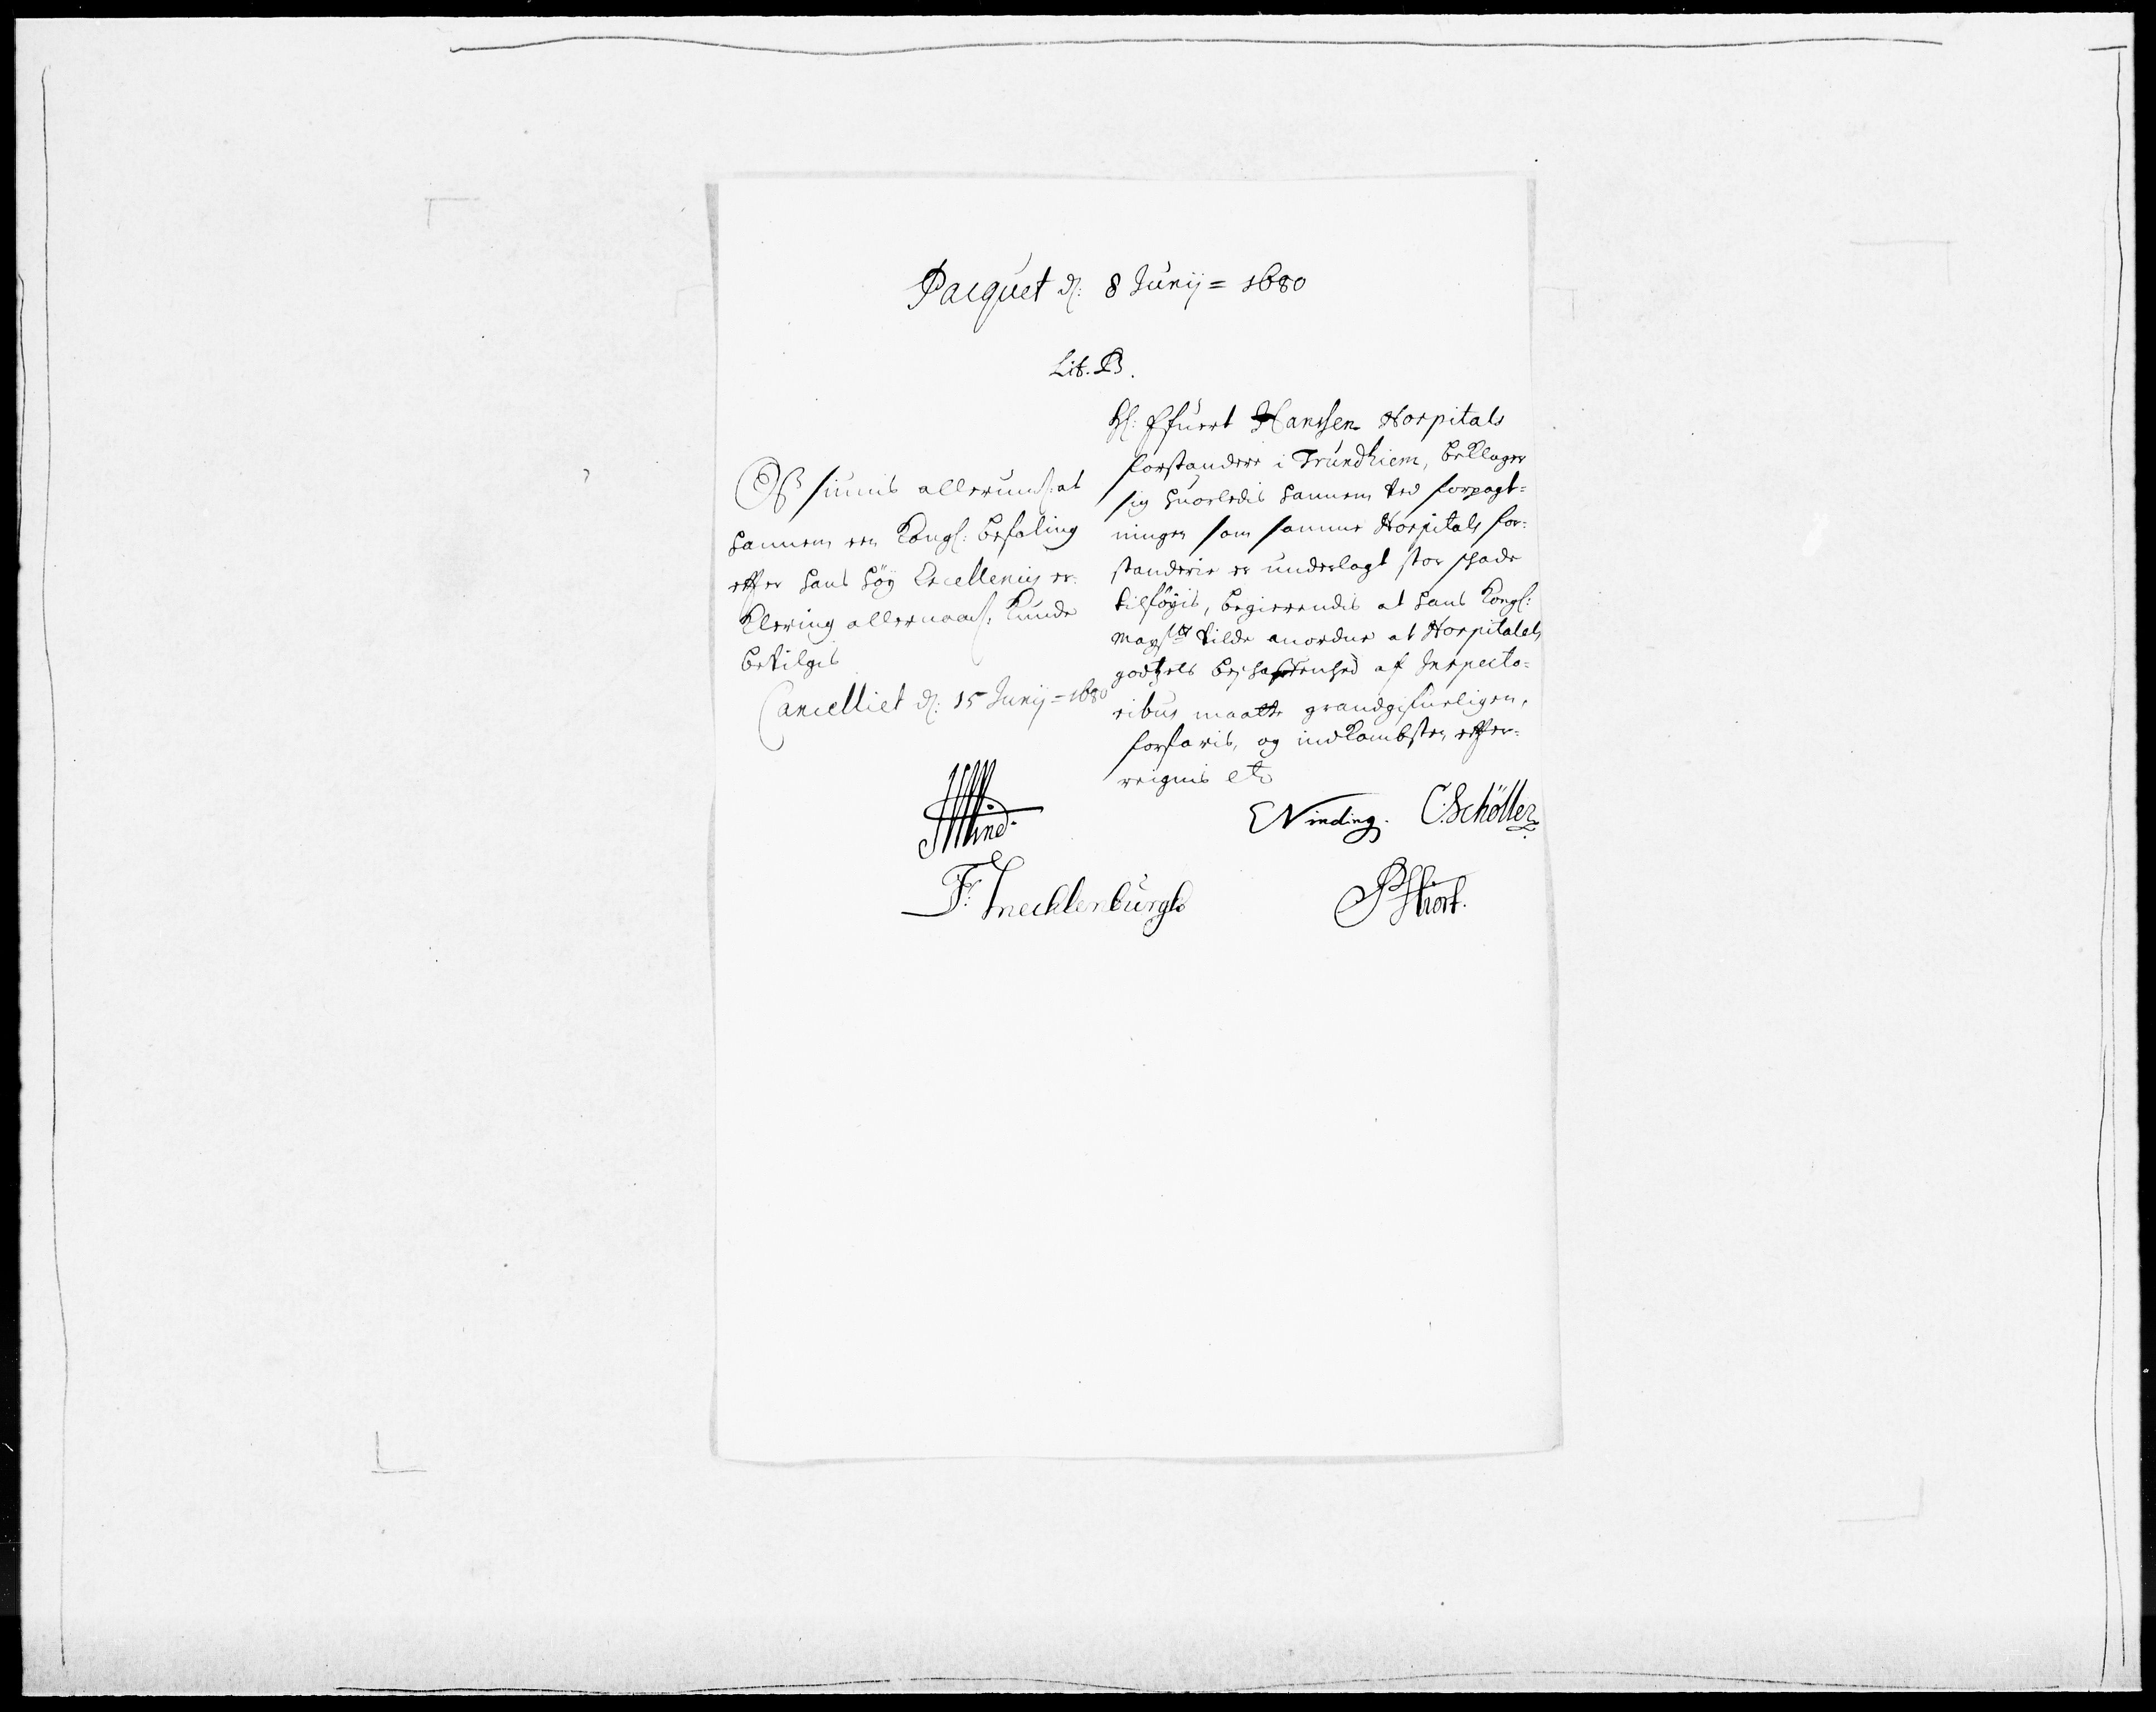 Pacquet d: 8 Junij = 1680
Lit. B.
Hl: Hanssen Hospitals
forstandere i Trundhiem, beklager
sig huorledis hannem ved forpagt=
ningen som samme Hospitals for=
standerie er underlagt stor schade
tilføyis, begierendis at hans Kongl:
Mayst vilde anordne at Hospitalets
godtzets beschaffenhed af Inspecto=
ribus maatte grandgifueligen,
forfaris, og indkombsten effter=
reignis etc
Oss siunis allerund: at
hannem een Kongl: befaling
effter hans høy Excellences er=
klering allernaad: kunde
bevilgis
Cancelliet d: 15 Junij = 1680
E Vinding. C. Schöller
Fr. Mecklenburgh